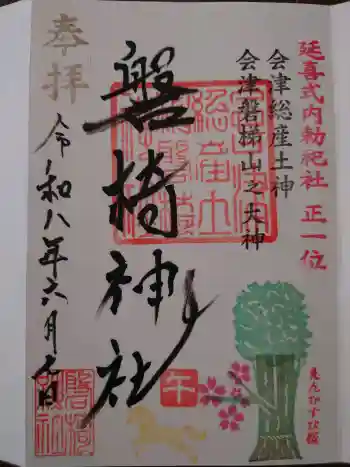 延喜式内勅祀社 正一位
会津総産土神
会津磐梯山之大神
奉拝
磐椅神社
令和八年六月
午
えんむすび桜